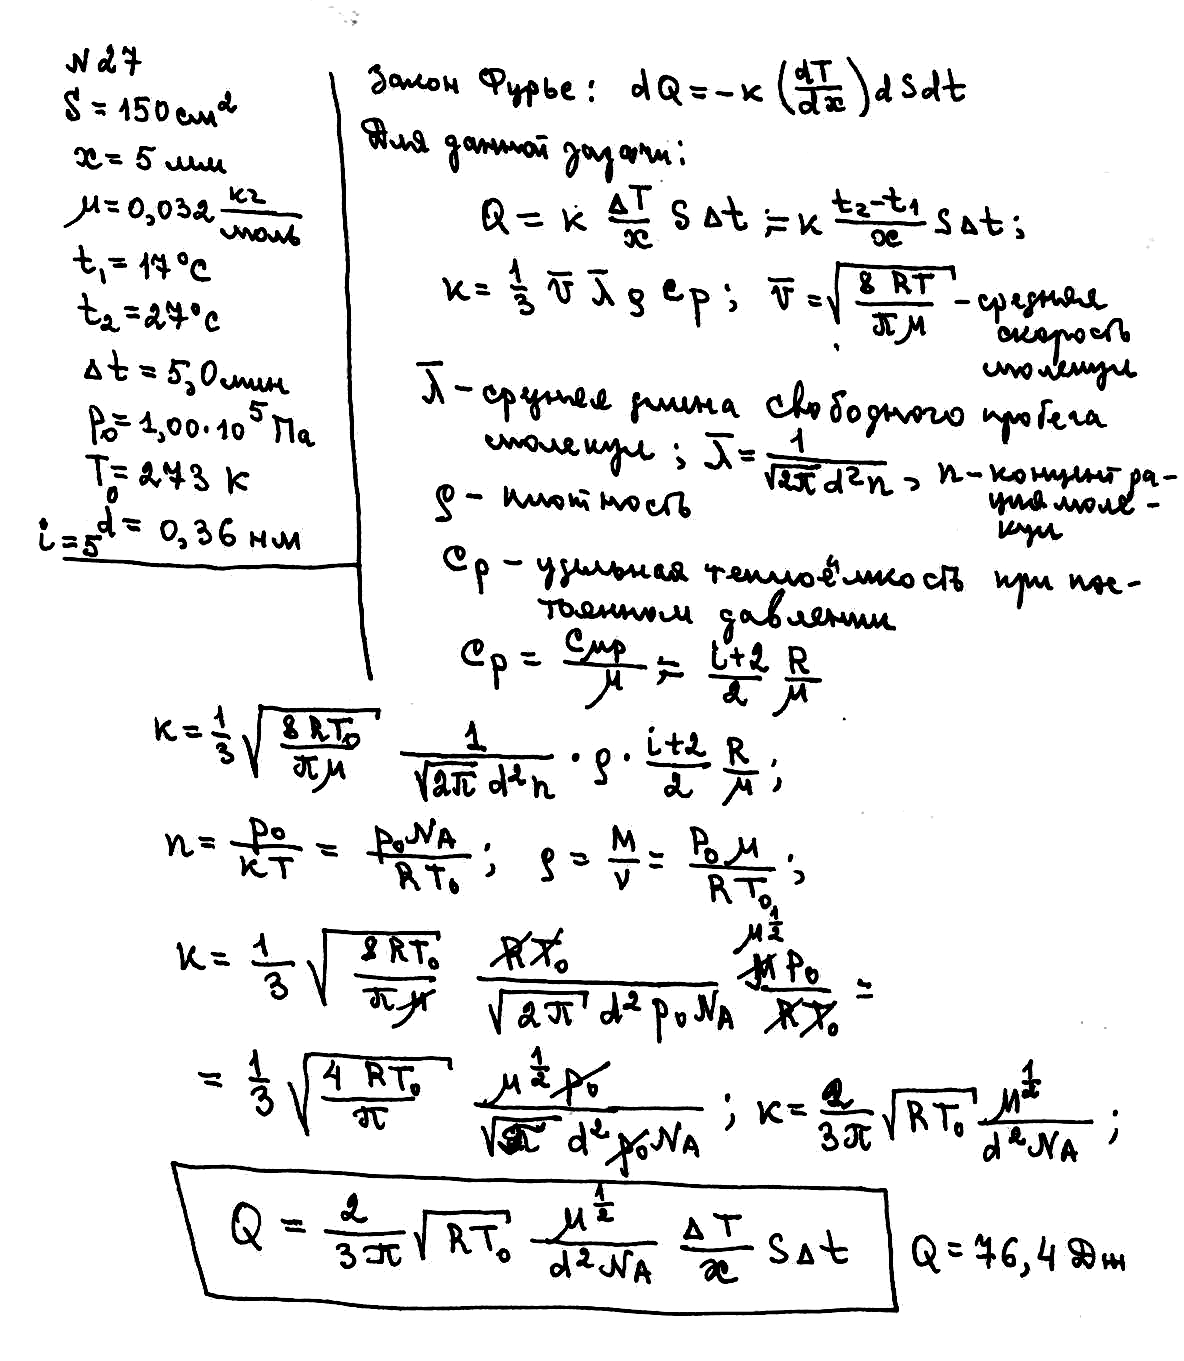 N 27
S = 150 см²
x = 5 мм
μ = 0,032 кг/моль
t₁ = 17°C
t₂ = 27°C
Δt = 5,0 мин
p₀ = 1,00·10⁵ Па
T₀ = 273 К
d = 0,36 нм
i = 5
Закон Фурье: dQ = -κ (dT/dx) dS dt
Для данной задачи:
Q = κ ΔT/x S Δt ; = κ (t₂-t₁)/x S Δt ;
κ = 1/3 v̄ λ̄ ρ cp ; v̄ = √(8RT/πμ) - средняя
скорость
молекул
λ̄ - средняя длина свободного пробега
молекул ; λ̄ = 1/(√2π d²n) , n - концентра-
ция моле-
кул
ρ - плотность
Cp - удельная теплоёмкость при пос-
тоянном давлении
Cp = Cμp/μ ; = (i+2)/2 R/μ
κ = 1/3 √(8RT₀/πμ) 1/(√2π d²n) · ρ · (i+2)/2 R/μ ;
n = p₀/кT = p₀NA/RT₀ ; ρ = M/V = P₀μ/RT₀ ;
κ = 1/3 √(8RT₀/πμ) RT₀/(√2π d²p₀NA) μ^½ μP₀/RT₀ =
= 1/3 √(4RT₀/π) μ^½ p₀/(√π d²p₀NA) ; κ = 2/3π √RT₀ μ^½/(d²NA) ;
Q = 2/3π √RT₀ μ^½/(d²NA) ΔT/x SΔt
Q = 76,4 Дж